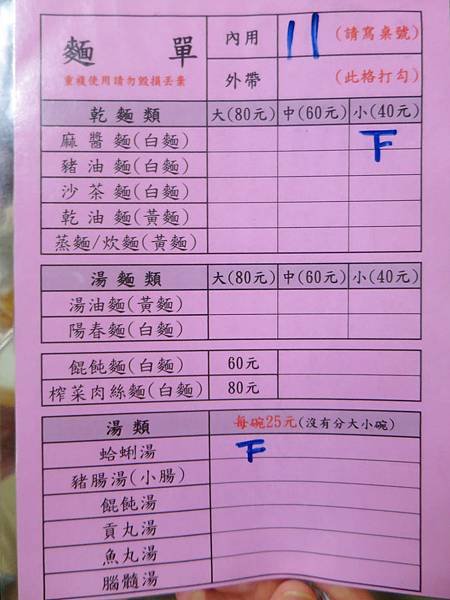 麵 單 內用 11 (請寫桌號)
重複使用請勿毀損丟棄 外帶 (此格打勾)
乾麵類 大(80元) 中(60元) 小(40元)
麻醬麵(白麵) 下
豬油麵(白麵)
沙茶麵(白麵)
乾油麵(黃麵)
蒸麵/炊麵(黃麵)
湯麵類 大(80元) 中(60元) 小(40元)
湯油麵(黃麵)
陽春麵(白麵)
餛飩麵(白麵) 60元
榨菜肉絲麵(白麵) 80元
湯類 每碗25元(沒有分大小碗)
蛤蜊湯 下
豬腸湯(小腸)
餛飩湯
貢丸湯
魚丸湯
腦髓湯